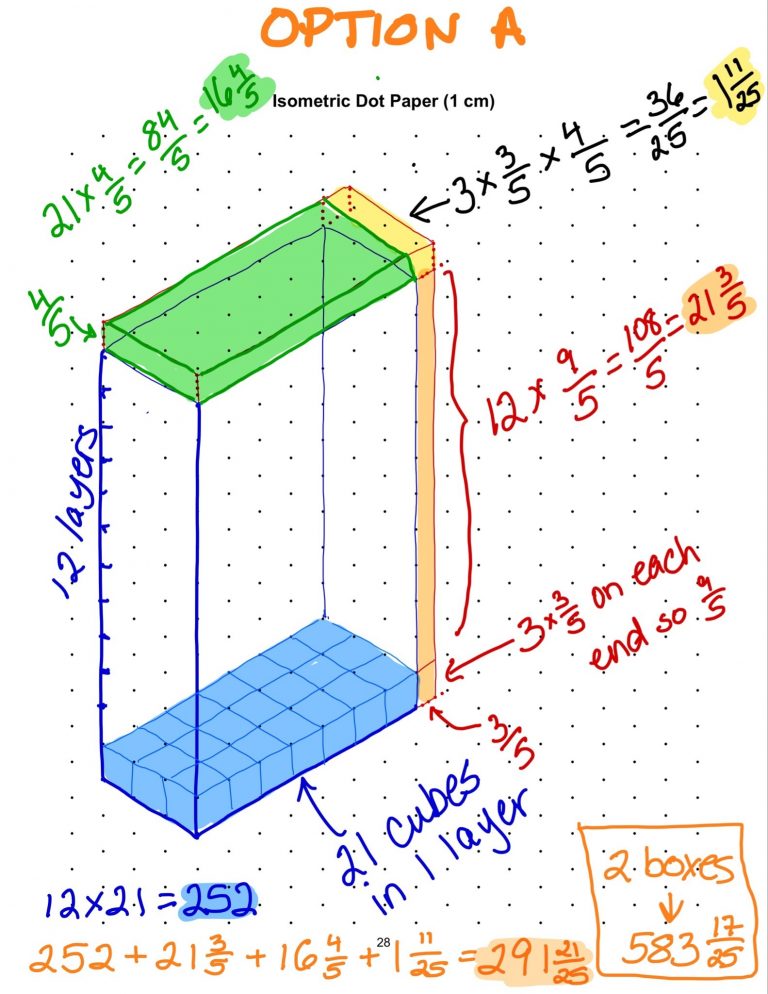 OPTION A
Isometric Dot Paper (1 cm)
21 × 4/5 = 84/5 = 16 4/5
3 × 3/5 × 4/5 = 36/25 = 1 11/25
4/5
12 × 9/5 = 108/5 = 21 3/5
12 layers
3 × 3/5 on each
end so 9/5
3/5
21 cubes
in 1 layer
2 boxes
↓
583 17/25
12 × 21 = 252
28
252 + 21 3/5 + 16 4/5 + 1 11/25 = 291 21/25